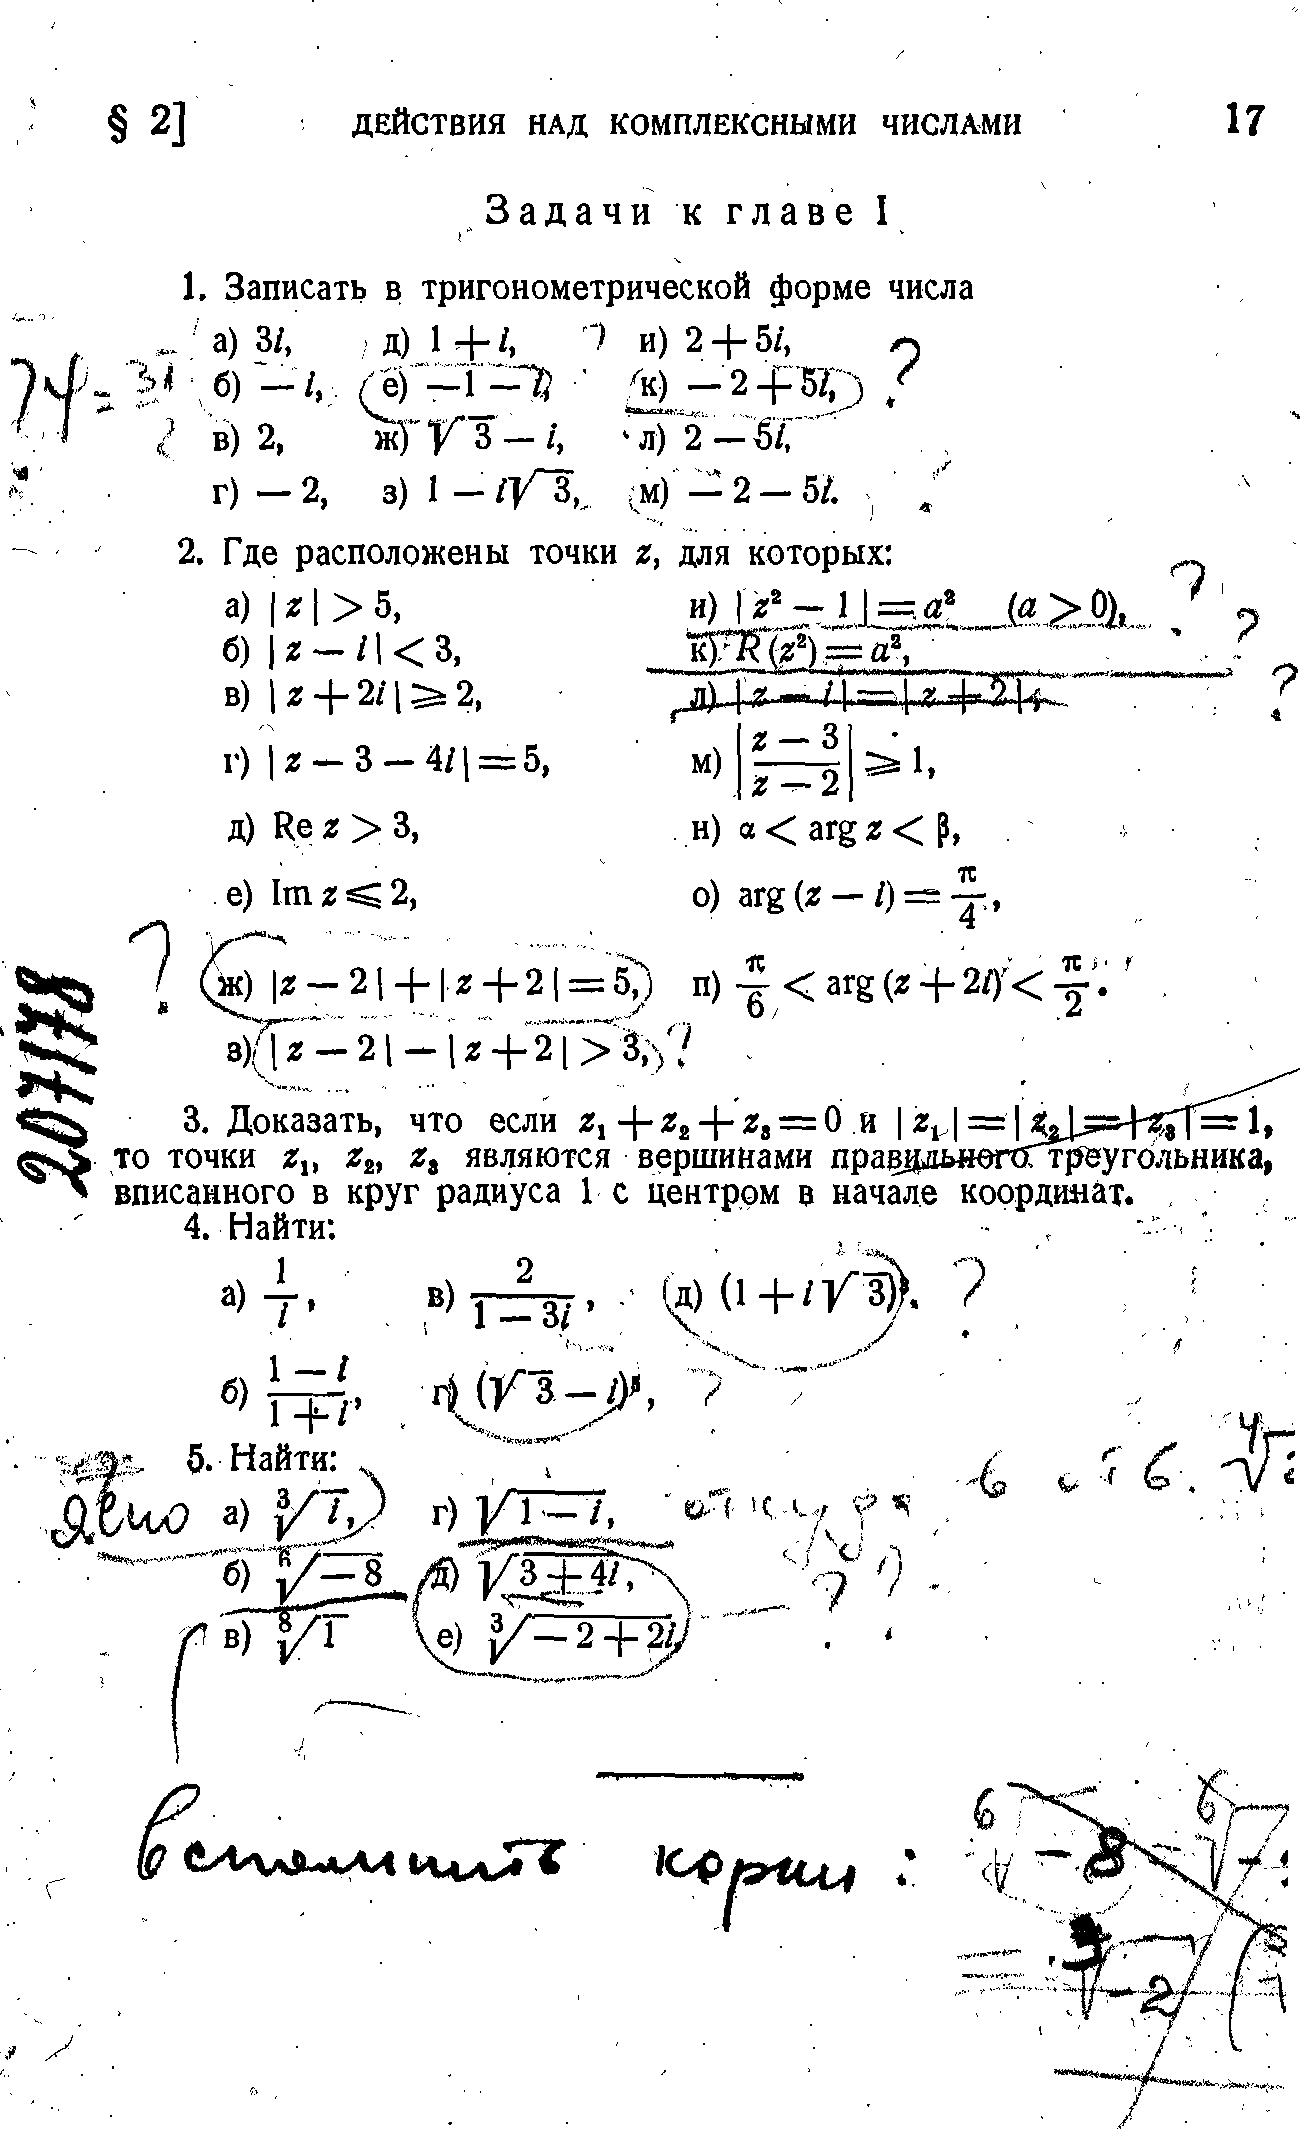 § 2] ДЕЙСТВИЯ НАД КОМПЛЕКСНЫМИ ЧИСЛАМИ 17
Задачи к главе I
1. Записать в тригонометрической форме числа
а) 3i, д) 1 + i, ? и) 2 + 5i,
б) — i, е) —1 — i, к) — 2 + 5i, ?
в) 2, ж) √3 — i, л) 2 — 5i,
г) — 2, з) 1 — i√3, м) — 2 — 5i.
2. Где расположены точки z, для которых:
а) |z| > 5, и) |z² — 1| = a² (a > 0), ?
б) |z — i| < 3, к) R(z²) = a², ?
в) |z + 2i| ⩾ 2, л) |z — i| = |z + 2|, ?
г) |z — 3 — 4i| = 5, м) |(z — 3)/(z — 2)| ⩾ 1,
д) Re z > 3, н) α < arg z < β,
е) Im z ⩽ 2, о) arg (z — i) = π/4,
? ж) |z — 2| + |z + 2| = 5, п) π/6 < arg (z + 2i) < π/2.
з) |z — 2| — |z + 2| > 3, ?
207178
3. Доказать, что если z₁ + z₂ + z₃ = 0 и |z₁| = |z₂| = |z₃| = 1,
то точки z₁, z₂, z₃ являются вершинами правильного треугольника,
вписанного в круг радиуса 1 с центром в начале координат.
4. Найти:
а) 1/i, в) 2/(1 — 3i), д) (1 + i√3)³. ?
б) (1 — i)/(1 + i), г) (√3 — i)⁵, ?
5. Найти:
ясно а) ∛i, г) √(1 — i), откуда
б) ⁶√—8 д) √(3 + 4i), ? ?
в) ⁸√1 е) ∛(—2 + 2i)
вспомнить корни: